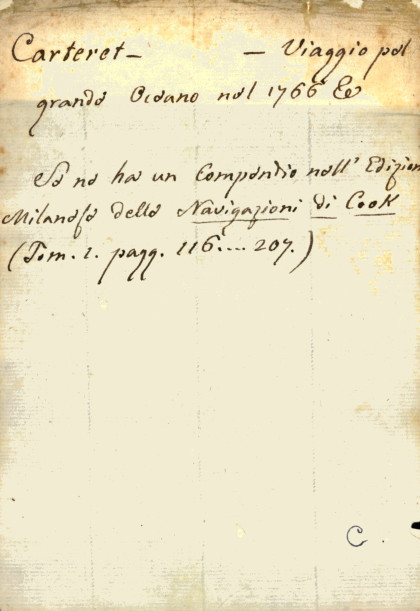 Carteret — — Viaggio pel
grande Oceano nel 1766 &c
Se ne ha un Compendio nell' Edizion
Milanese delle Navigazioni di Cook
(Tom. 1. pagg. 116.... 207.)
C.